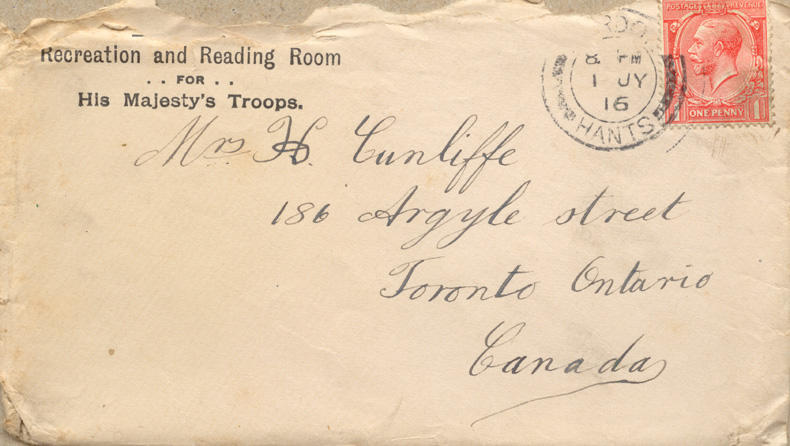 Recreation and Reading Room
. . FOR . .
His Majesty's Troops.
8 PM
1 JY
16
HANTS
POSTAGE REVENUE
ONE PENNY 1
Mrs H. Cunliffe
186 Argyle street
Toronto Ontario
Canada